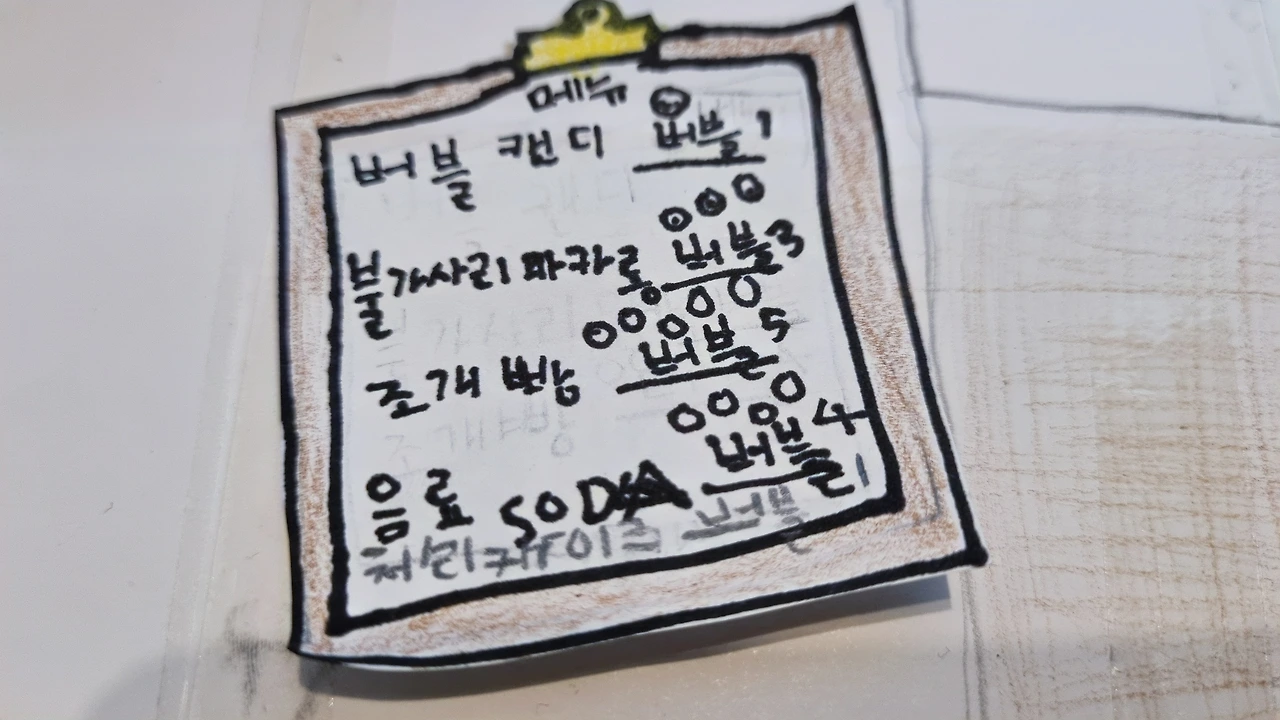 메뉴
버블 캔디 버블 1
불가사리 마카롱 버블 3
조개 빵 버블 5
음료 SODA 버블 4
체리케이크 버블 1